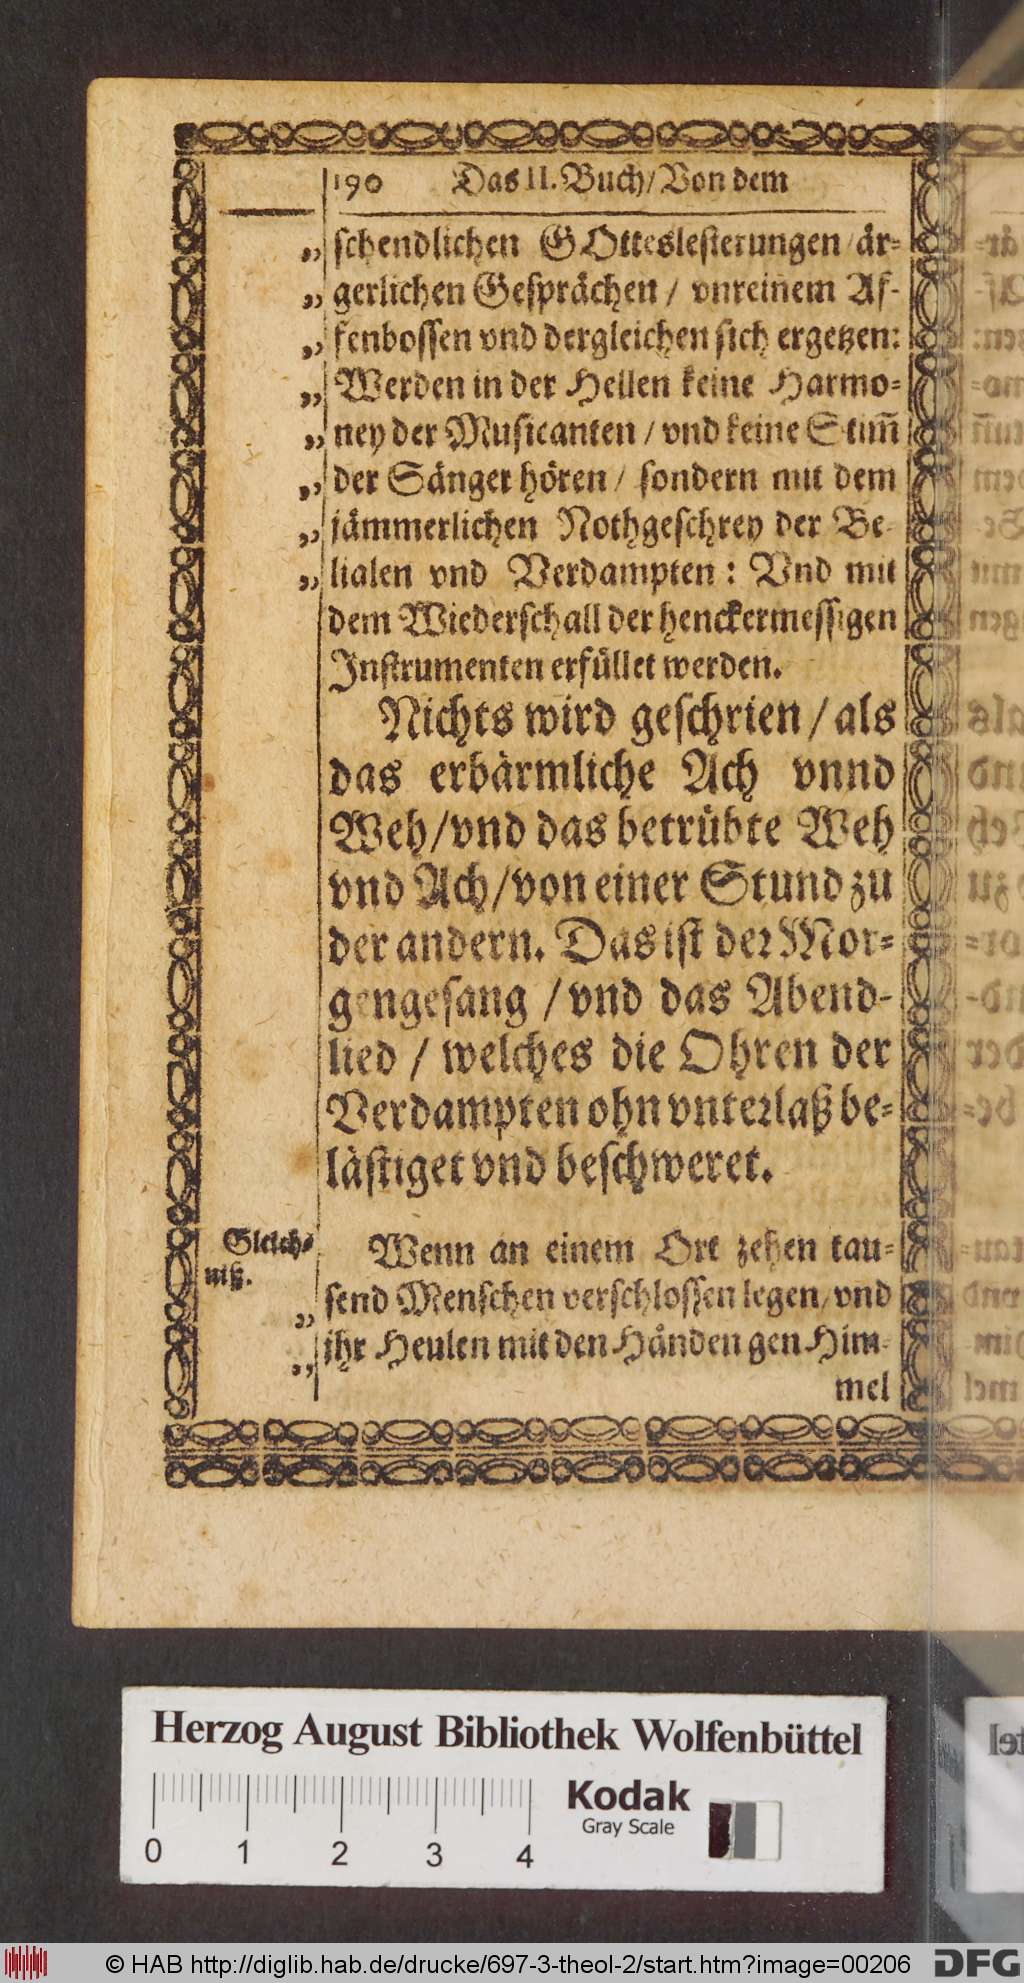 190 Das II. Buch/Von dem
„ schendlichen GOtteslesterungen/är-
„ gerlichen Gesprächen / vnreinem Af-
„ fenbossen vnd dergleichen sich ergetzen:
„ Werden in der Hellen keine Harmo-
„ ney der Musicanten / vnd keine Stim̃
„ der Sänger hören / sondern mit dem
„ jämmerlichen Nothgeschrey der Be-
„ lialen vnd Verdampten: Vnd mit
dem Wiederschall der henckermessigen
Instrumenten erfüllet werden.
Nichts wird geschrien / als
das erbärmliche Ach vnnd
Weh/vnd das betrübte Weh
vnd Ach/von einer Stund zu
der andern. Das ist der Mor-
gengesang / vnd das Abend-
lied / welches die Ohren der
Verdampten ohn vnterlaß be-
lästiget vnd beschweret.
Gleich-
niß.
Wenn an einem Ort zehen tau-
„ send Menschen verschlossen legen/vnd
„ ihr Heulen mit den Händen gen Him-
mel
Herzog August Bibliothek Wolfenbüttel
0 1 2 3 4
Kodak
Gray Scale
© HAB http://diglib.hab.de/drucke/697-3-theol-2/start.htm?image=00206
DFG